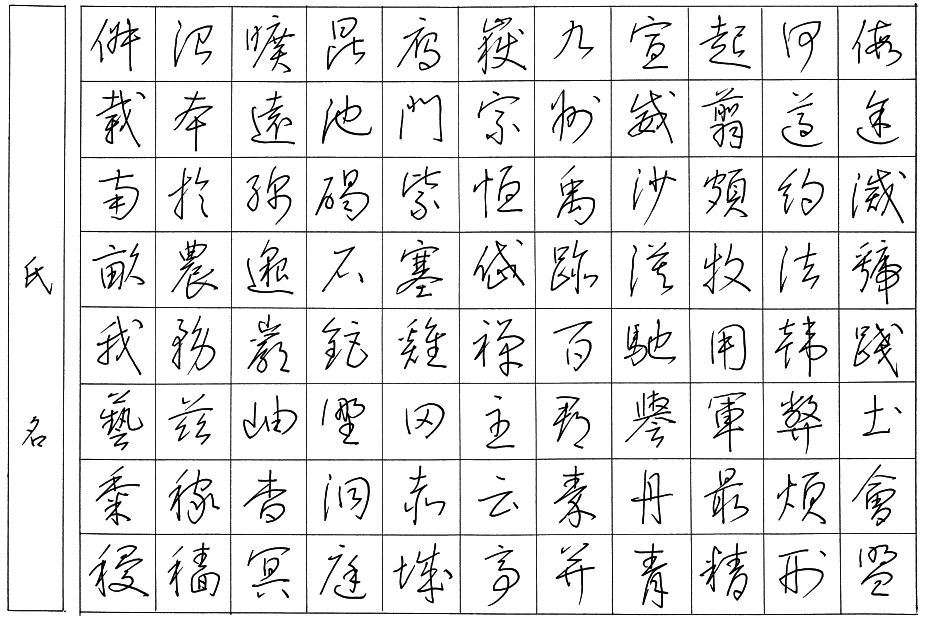 假途滅虢踐土會盟
何遵約法韓弊煩刑
起翦頗牧用軍最精
宣威沙漠馳譽丹青
九州禹跡百郡秦并
嶽宗恒岱禪主云亭
雁門紫塞雞田赤城
昆池碣石鉅野洞庭
曠遠綿邈巖岫杳冥
治本於農務茲稼穡
俶載南畝我藝黍稷
氏名